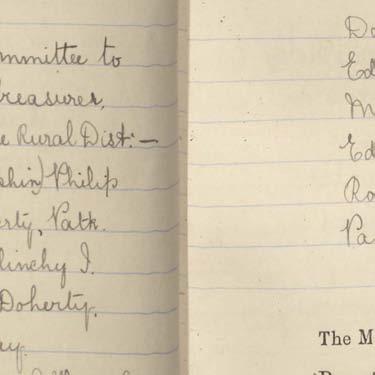 ommittee to
reasurer,
e Rural Dist:—
shin) Philip
erty, Patk.
linchy I.
Doherty.
ay.
Do
Ed
M
Ed
Ro
Pa
The M